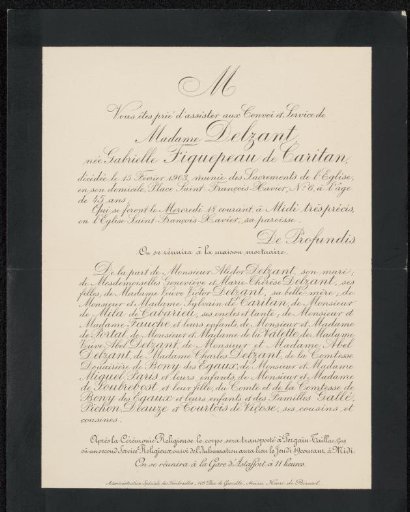 M
Vous êtes prié d'assister aux Convoi et Service de
Madame Delzant,
née Gabrielle Figuepeau de Caritan,
décédée le 15 Février 1903, munie des Sacrements de l'Eglise,
en son domicile, Place Saint François-Xavier, N° 6, à l'âge
de 45 ans.
Qui se feront le Mercredi 18 courant à Midi très précis,
en l'Eglise Saint François-Xavier, sa paroisse.
De Profundis
On se réunira à la maison mortuaire.
De la part de Monsieur Alidor Delzant, son mari,
de Mesdemoiselles Geneviève et Marie-Thérèse Delzant, ses
filles, de Madame Veuve Victor Delzant, sa belle-mère, de
Monsieur et Madame Sylvain de Caritan, de Monsieur
de Mila de Cabarieu, ses oncles et tante, de Monsieur et
Madame Fauché et leurs enfants, de Monsieur et Madame
de Portal, de Monsieur et Madame de la Valette, de Madame
Veuve Abel Delzant, de Monsieur et Madame Abel
Delzant, de Madame Charles Delzant, de la Comtesse
Douairière de Bony des Egaux, de Monsieur et Madame
Miguel Paris et leurs enfants, de Monsieur et Madame
de et leur fille, du Comte et de la Comtesse de
Bony des Egaux et leurs enfants et des Familles Gallé,
Pichon, et Courtois de Viçose, ses cousins et
cousines.
Après la Cérémonie Religieuse le corps sera transporté à
où un second Service Religieux suivi de l'Inhumation aura lieu le Jeudi 19 courant, à Midi.
On se réunira à la Gare d'Astaffort à 11 heures.
Administration Spéciale des Funérailles,